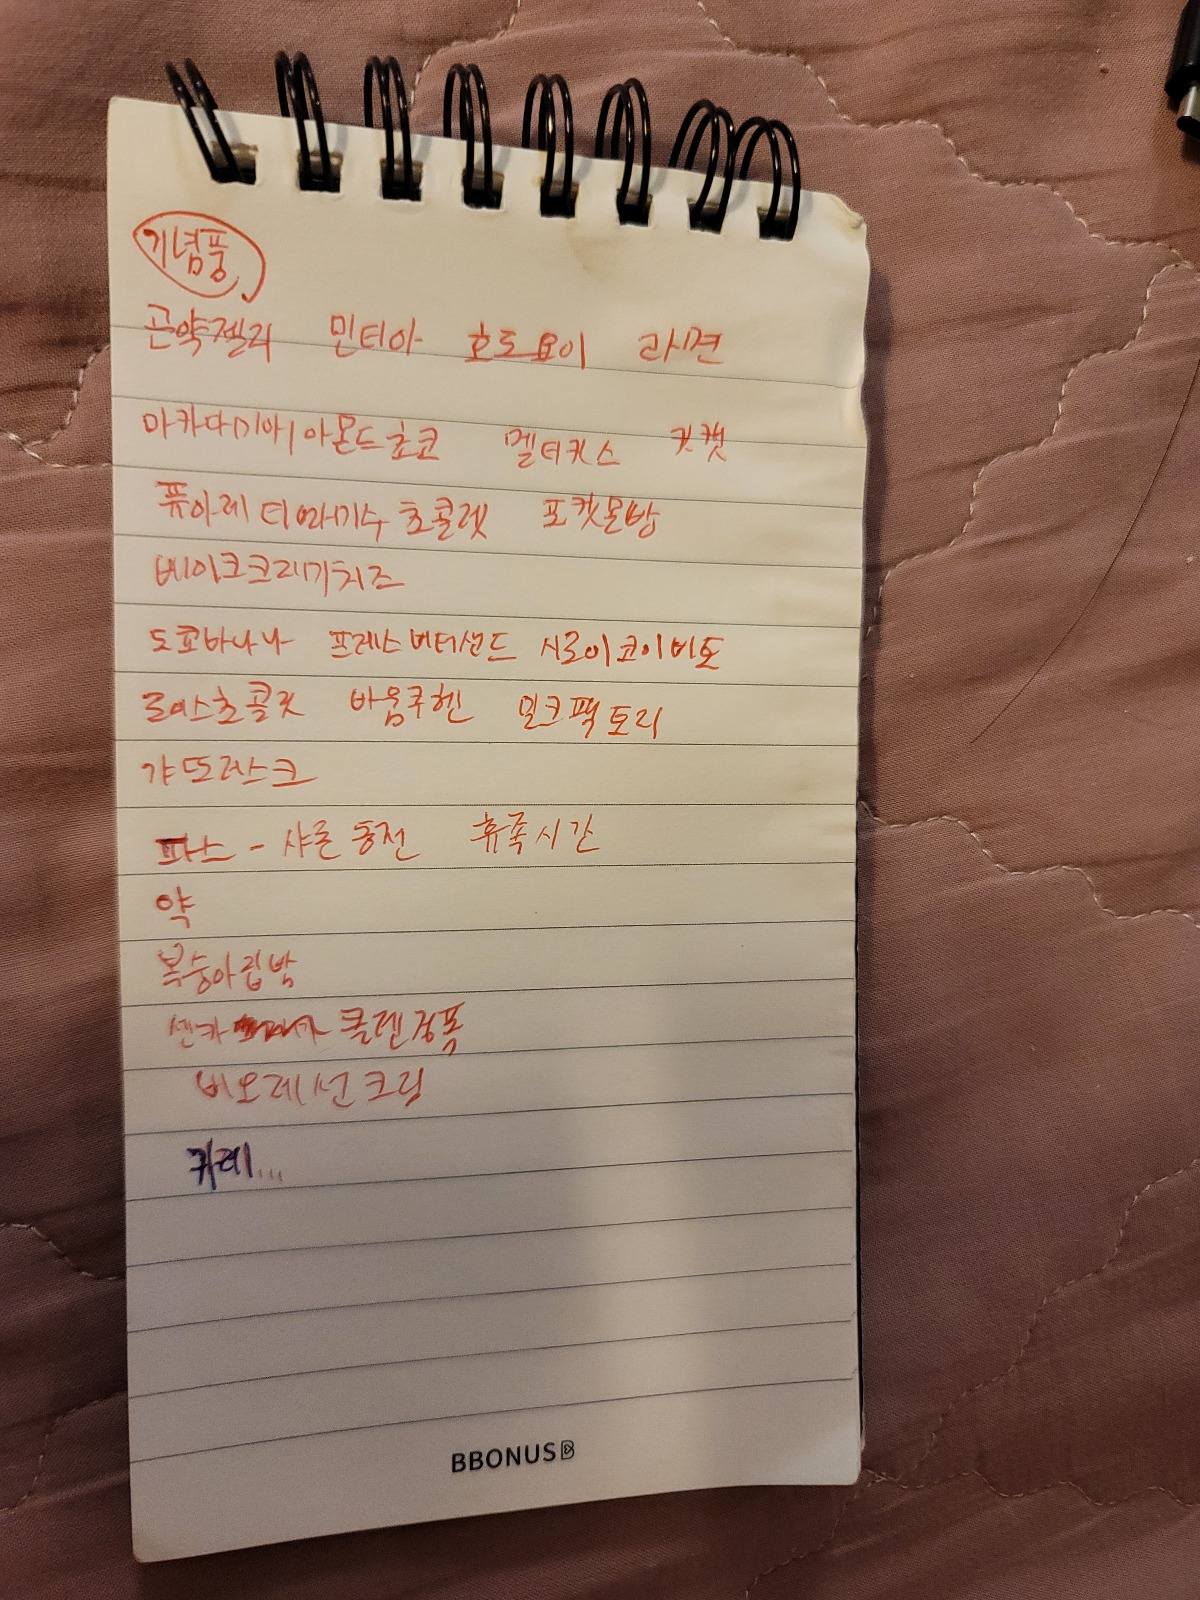 기념품
곤약젤리 민티아 호로요이 라면
마카다미아 아몬드초코 멜티키스 킷캣
퓨어레 티라미수 초콜렛 포켓몬밥
베이크크리미치즈
도쿄바나나 프레스버터샌드 시로이코이비토
로이스초콜릿 바움쿠헨 밀크팩토리
갸또러스크
파스 - 샤론 동전 휴족시간
약
복숭아립밤
센카 클렌징폼
비오레 선크림
카레...
BBONUS